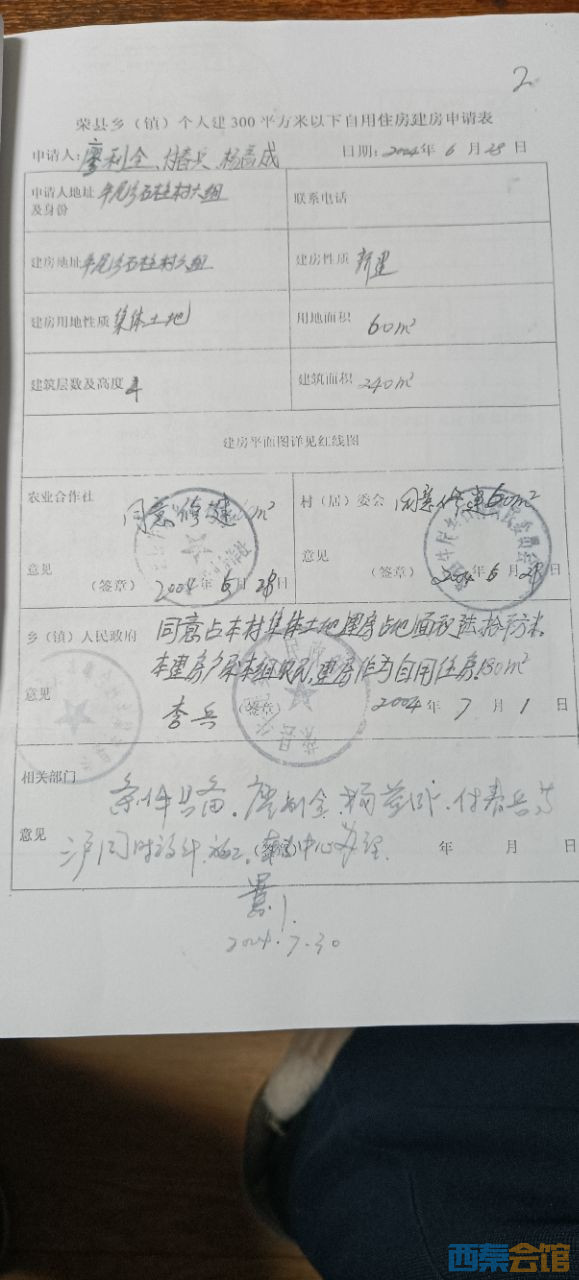 2
荣县乡（镇）个人建300平方米以下自用住房建房申请表
申请人：廖利全、付春兵、杨益成 日期：2004年6月28日
申请人地址及身份 牟尾沟石柱村六组 联系电话
建房地址 牟尾沟石柱村六组 建房性质 新建
建房用地性质 集体土地 用地面积 60m²
建筑层数及高度 4 建筑面积 240m²
建房平面图详见红线图
农业合作社 同意修建 m² 村（居）委会 同意修建60m²
意见 意见
（签章） 2004年6月28日 （签章） 2004年6月28日
乡（镇）人民政府 同意占本村集体土地建房占地面积陆拾平方米，
本建房户属本组农民，建房作为自用住房180m²
意见 李兵 （签章） 2004年7月1日
相关部门 条件具备，廖利全、杨益成、付春兵等
意见 三户同时设计、施工， 中心办理 年 月 日
2004.7.30
西秦会馆